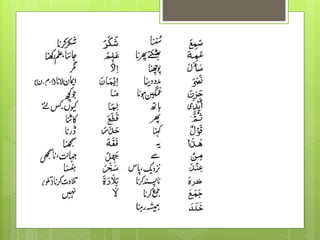 سَمِعَ سننا شَكَرَ شکر کرنا
عَمِهَ بھٹکتے پھرنا عَلِمَ جاننا، علم رکھنا
سَأَلَ پوچھنا إِلَّا مگر
نَصَرَ مدد دینا إِيْمَانٌ ایمان لانا (ا۔م۔ن)
حَزِنَ غمگین ہونا مَا جو کچھ
أَيْدِي ہاتھ لِمَا کیوں، کس لئے
ثُمَّ پھر قَطَعَ کاٹنا
قَوْلٌ کہنا ڈرنا
هٰذَا یہ فَقِهَ سمجھنا
مِنْ سے جَهِلَ جہالت، ناسمجھی
عِنْدَ نزدیک، پاس ہنسنا
كَرِهَ ناپسند کرنا تِلَاوَةٌ تلاوت کرنا
جَمَعَ جمع کرنا لَا نہیں
خَلَدَ ہمیشہ رہنا